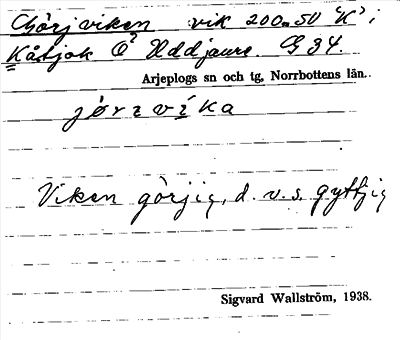 Görjviken vik 200m SV "K" i
Kåtjok Ö² Uddjaure. G 34.
Arjeplogs sn och tg, Norrbottens län.
jørɩvíka
Viken görjig, d. v. s. gyttjig
Sigvard Wallström, 1938.